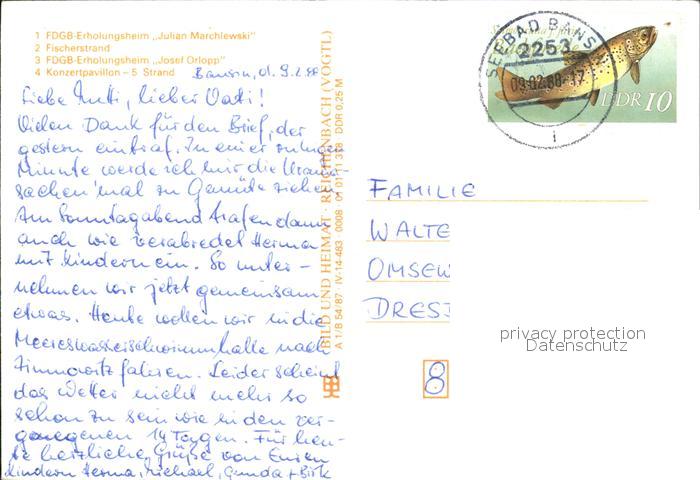 1 FDGB-Erholungsheim „Julian Marchlewski"
2 Fischerstrand
3 FDGB-Erholungsheim „Josef Orlopp"
4 Konzertpavillon – 5 Strand
Bansin, d. 9.2.88
Liebe Mutti, lieber Vati!
Vielen Dank für den Brief, der
gestern eintraf. In einer ruhigen
Minute werde ich mir die
sachen 'mal zu Gemüte ziehen.
Am Sonntagabend trafen dann
auch wie verabredet Herma
mit Kindern ein. So unter-
nehmen wir jetzt gemeinsam
etwas. Heute wollen wir in die
Meereswasserschwimmhalle nach
Zinnowitz fahren. Leider scheint
das Wetter nicht mehr so
schön zu sein wie in den ver-
gangenen 14 Tagen. Für heu-
te herzliche Grüße von Euren
Kindern Herma, Michael, Gunda + Birk
BILD UND HEIMAT · REICHENBACH (VOGTL)
A 1/B 54/87 IV-14-483 0008 01 01 11 378 DDR 0,25 M
SEEBAD BANSIN
2253
09.02.88-17
DDR 10
FAMILIE
WALTE
OMSEW
DRES
8
privacy protection
Datenschutz